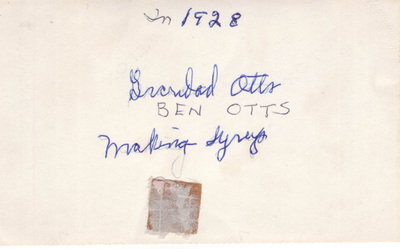 In 1928
Grandad Otts
BEN OTTS
Making Syrup